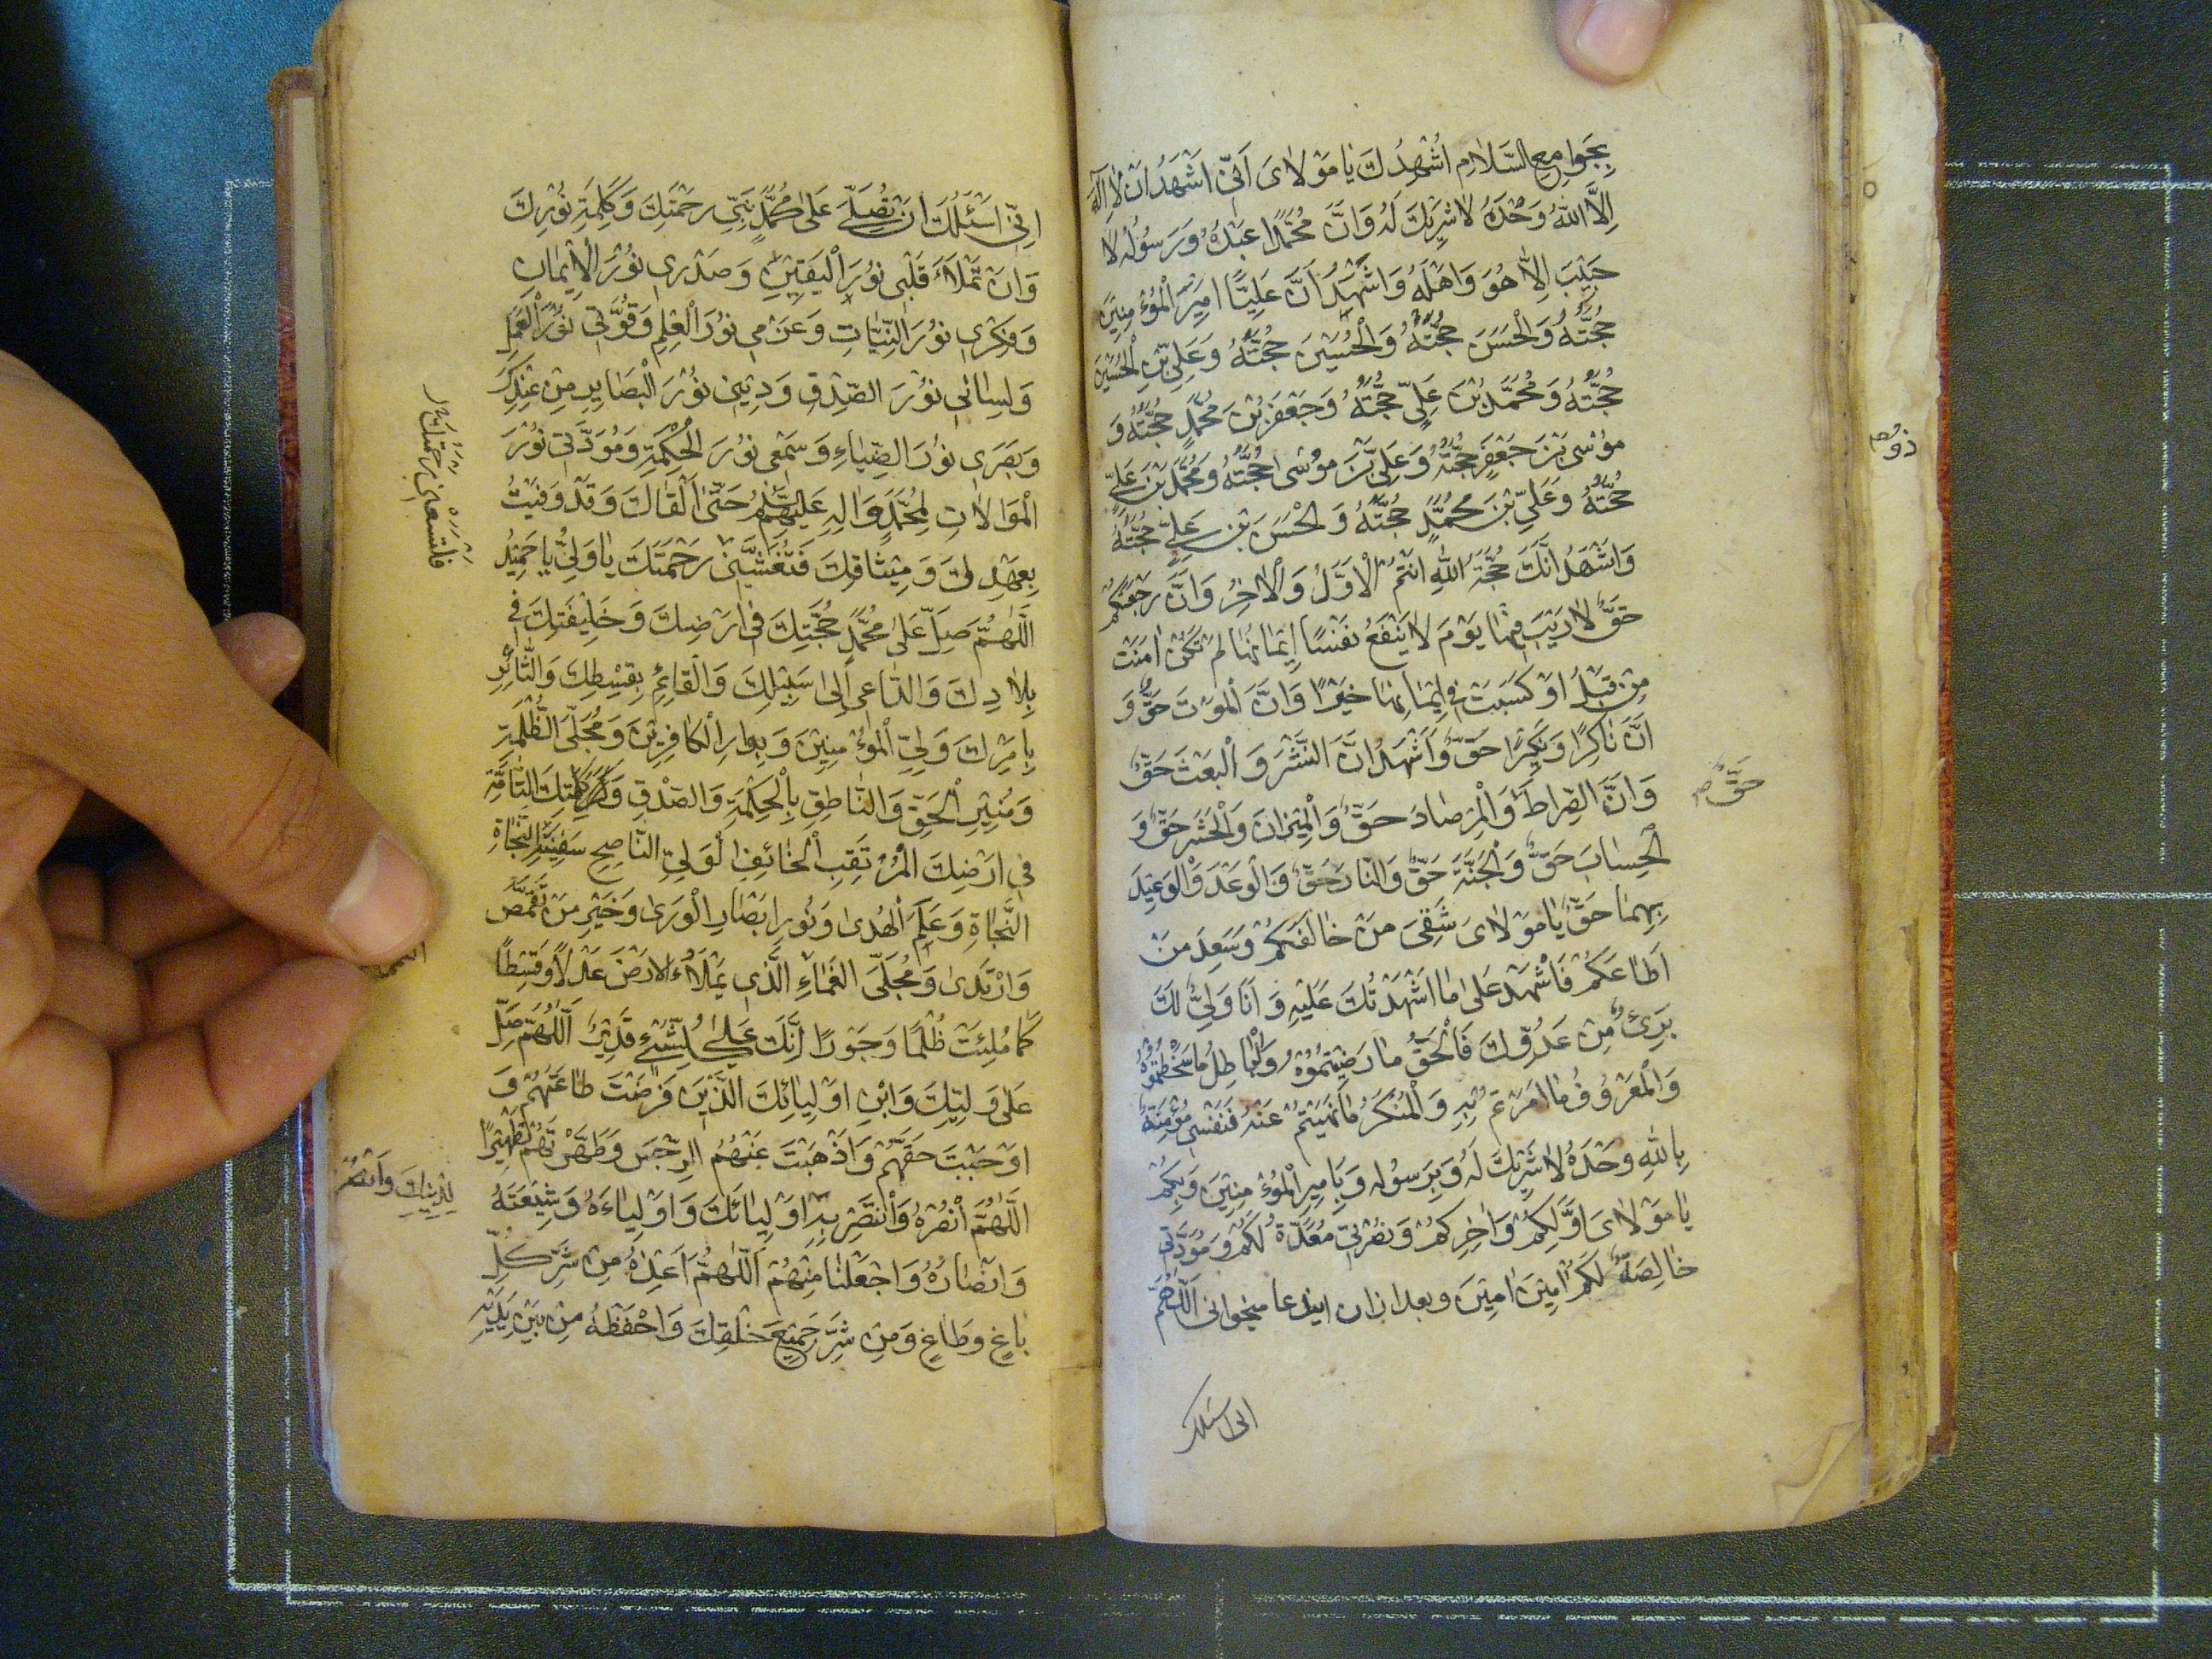 بِجَوامِعِ السَّلامِ اُشْهِدُكَ يا مَوْلاىَ اَنّى اَشْهَدُ اَنْ لا اِلهَ
اِلاَّ اللهُ وَحْدَهُ لا شَرِيكَ لَهُ وَاَنَّ مُحَمَّدًا عَبْدُهُ وَرَسُولُهُ لا
حَبِيْبَ اِلاّ هُوَ وَاَهْلُهُ وَاَشْهَدُ اَنَّ عَلِيًّا اَمِيْرَ الْمُؤْمِنِيْنَ
حُجَّتُهُ وَالْحَسَنَ حُجَّتُهُ وَالْحُسَيْنَ حُجَّتُهُ وَعَلِىَّ بْنَ الْحُسَيْنِ
حُجَّتُهُ وَمُحَمَّدَ بْنَ عَلِىٍّ حُجَّتُهُ وَجَعْفَرَ بْنَ مُحَمَّدٍ حُجَّتُهُ وَ
مُوْسَى بْنَ جَعْفَرٍ حُجَّتُهُ وَعَلِىَّ بْنَ مُوْسى حُجَّتُهُ وَمُحَمَّدَ بْنَ عَلِىٍّ
حُجَّتُهُ وَعَلِىَّ بْنَ مُحَمَّدٍ حُجَّتُهُ وَالْحَسَنَ بْنَ عَلِىٍّ حُجَّتُهُ
وَاَشْهَدُ اَنَّكَ حُجَّةُ اللهِ اَنْتُمْ الْاَوَّلُ وَالْاخِرُ وَاَنَّ رَجْعَتَكُمْ
حَقٌّ لا رَيْبَ فِيْهَا يَوْمَ لا يَنْفَعُ نَفْسًا اِيْمَانُهَا لَمْ تَكُنْ امَنَتْ
مِنْ قَبْلُ اَوْ كَسَبَتْ فِى اِيْمَانِهَا خَيْرًا وَاَنَّ الْمَوْتَ حَقٌّ وَ
اَنَّ ناكِرًا وَنَكِيْرًا حَقٌّ وَاَشْهَدُ اَنَّ النَّشْرَ وَالْبَعْثَ حَقٌّ
وَاَنَّ الصِّراطَ وَالْمِرْصادَ حَقٌّ وَالْمِيْزانَ وَالْحَشْرَ حَقٌّ وَ
الْحِسابَ حَقٌّ وَالْجَنَّةَ حَقٌّ وَالنّارَ حَقٌّ وَالْوَعْدَ وَالْوَعِيْدَ
بِهِمَا حَقٌّ يا مَوْلاىَ شَقِىَ مَنْ خالَفَكُمْ وَسَعِدَ مَنْ
اَطاعَكُمْ فَاشْهَدْ عَلى ما اَشْهَدْتُكَ عَلَيْهِ وَاَنَا وَلِىٌّ لَكَ
بَرِىءٌ مِنْ عَدُوِّكَ فَالْحَقُّ ما رَضِيْتُمُوْهُ وَالْباطِلُ ما سَخَطْتُمُوْهُ
وَالْمَعْرُوْفُ ما اَمَرْتُمْ بِهِ وَالْمُنْكَرُ ما نَهَيْتُمْ عَنْهُ فَنَفْسِى مُؤْمِنَةٌ
بِاللهِ وَحْدَهُ لا شَرِيْكَ لَهُ وَبِرَسُوْلِه وَبِاَمِيْرِ الْمُؤْمِنِيْنَ وَبِكُمْ
يا مَوْلاىَ اَوَّلِكُمْ وَاخِرِكُمْ وَنُصْرَتِى مُعَدَّةٌ لَكُمْ وَمَوَدَّتِى
خالِصَةٌ لَكُمْ امِيْنَ امِيْنَ وبعد ازان ايندعا ميخوانى اَللّهُمَّ
انى اسئلك
حَقٌّ
اِنّى اَسْئَلُكَ اَنْ تُصَلِّىَ عَلى مُحَمَّدٍ نَبِىِّ رَحْمَتِكَ وَكَلِمَةِ نُوْرِكَ
وَاَنْ تَمْلَاَ قَلْبى نُوْرَ الْيَقِيْنِ وَصَدْرِى نُوْرَ الْاِيْمانِ
وَفِكْرِى نُوْرَ النِّيّاتِ وَعَزْمِى نُوْرَ الْعِلْمِ وَقُوَّتِى نُوْرَ الْعَمَلِ
وَلِسانِى نُوْرَ الصِّدْقِ وَدِيْنِى نُوْرَ الْبَصَايِرِ مِنْ عِنْدِكَ
وَبَصَرِى نُوْرَ الضِّياءِ وَسَمْعِى نُوْرَ الْحِكْمَةِ وَمَوَدَّتِى نُوْرَ
الْمُوَالاتِ لِمُحَمَّدٍ وَالِهِ عَلَيْهِمُ حَتّى اَلْقاكَ وَقَدْ وَفَيْتُ
بِعَهْدِكَ وَمِيْثاقِكَ فَتُغَشِّيَنِى رَحْمَتَكَ يا وَلِىُّ يا حَمِيْدُ
اَللّهُمَّ صَلِّ عَلى مُحَمَّدٍ حُجَّتِكَ فى اَرْضِكَ وَخَلِيْفَتِكَ فى
بِلادِكَ وَالدّاعِى اِلى سَبِيْلِكَ وَالْقائِمِ بِقِسْطِكَ وَالثّائِرِ
بِاَمْرِكَ وَلِىِّ الْمُؤْمِنِيْنَ وَبَوارِ الْكافِرِيْنَ وَمُجَلِّى الظُّلْمَةِ
وَمُنِيْرِ الْحَقِّ وَالنّاطِقِ بِالْحِكْمَةِ وَالصِّدْقِ وَكَلِمَتِكَ التّامَّةِ
فى اَرْضِكَ الْمُرْتَقِبِ الْخائِفِ الْوَلِىِّ النّاصِحِ سَفِيْنَةِ النَّجاةِ
النَّجاةِ وَعَلَمِ الْهُدى وَنُوْرِ اَبْصارِ الْوَرى وَخَيْرِ مَنْ تَقَمَّصَ
وَارْتَدى وَمُجَلِّى الْغَمّاءِ الَّذِى يَمْلَاُ الْاَرْضَ عَدْلًا وَقِسْطًا
كَما مُلِئَتْ ظُلْمًا وَجَوْرًا اِنَّكَ عَلى كُلِّ شَىْءٍ قَدِيْرٌ اَللّهُمَّ صَلِّ
عَلى وَلِيِّكَ وَابْنِ اَوْلِيائِكَ الَّذِيْنَ فَرَضْتَ طاعَتَهُمْ وَ
اَوْجَبْتَ حَقَّهُمْ وَاَذْهَبْتَ عَنْهُمُ الرِّجْسَ وَطَهَّرْتَهُمْ تَطْهِيْرًا
اَللّهُمَّ انْصُرْهُ وَانْتَصِرْ بِهِ اَوْلِيائَكَ وَاَوْلِياءَهُ وَشِيْعَتَهُ
وَاَنْصارَهُ وَاجْعَلْنا مِنْهُمْ اَللّهُمَّ اَعِذْهُ مِنْ شَرِّ كُلِّ
باغٍ وَطاغٍ وَمِنْ شَرِّ جَمِيْعِ خَلْقِكَ وَاحْفَظْهُ مِنْ بَيْنِ يَدَيْهِ
لِدِيْنِكَ وَانْصُرْ